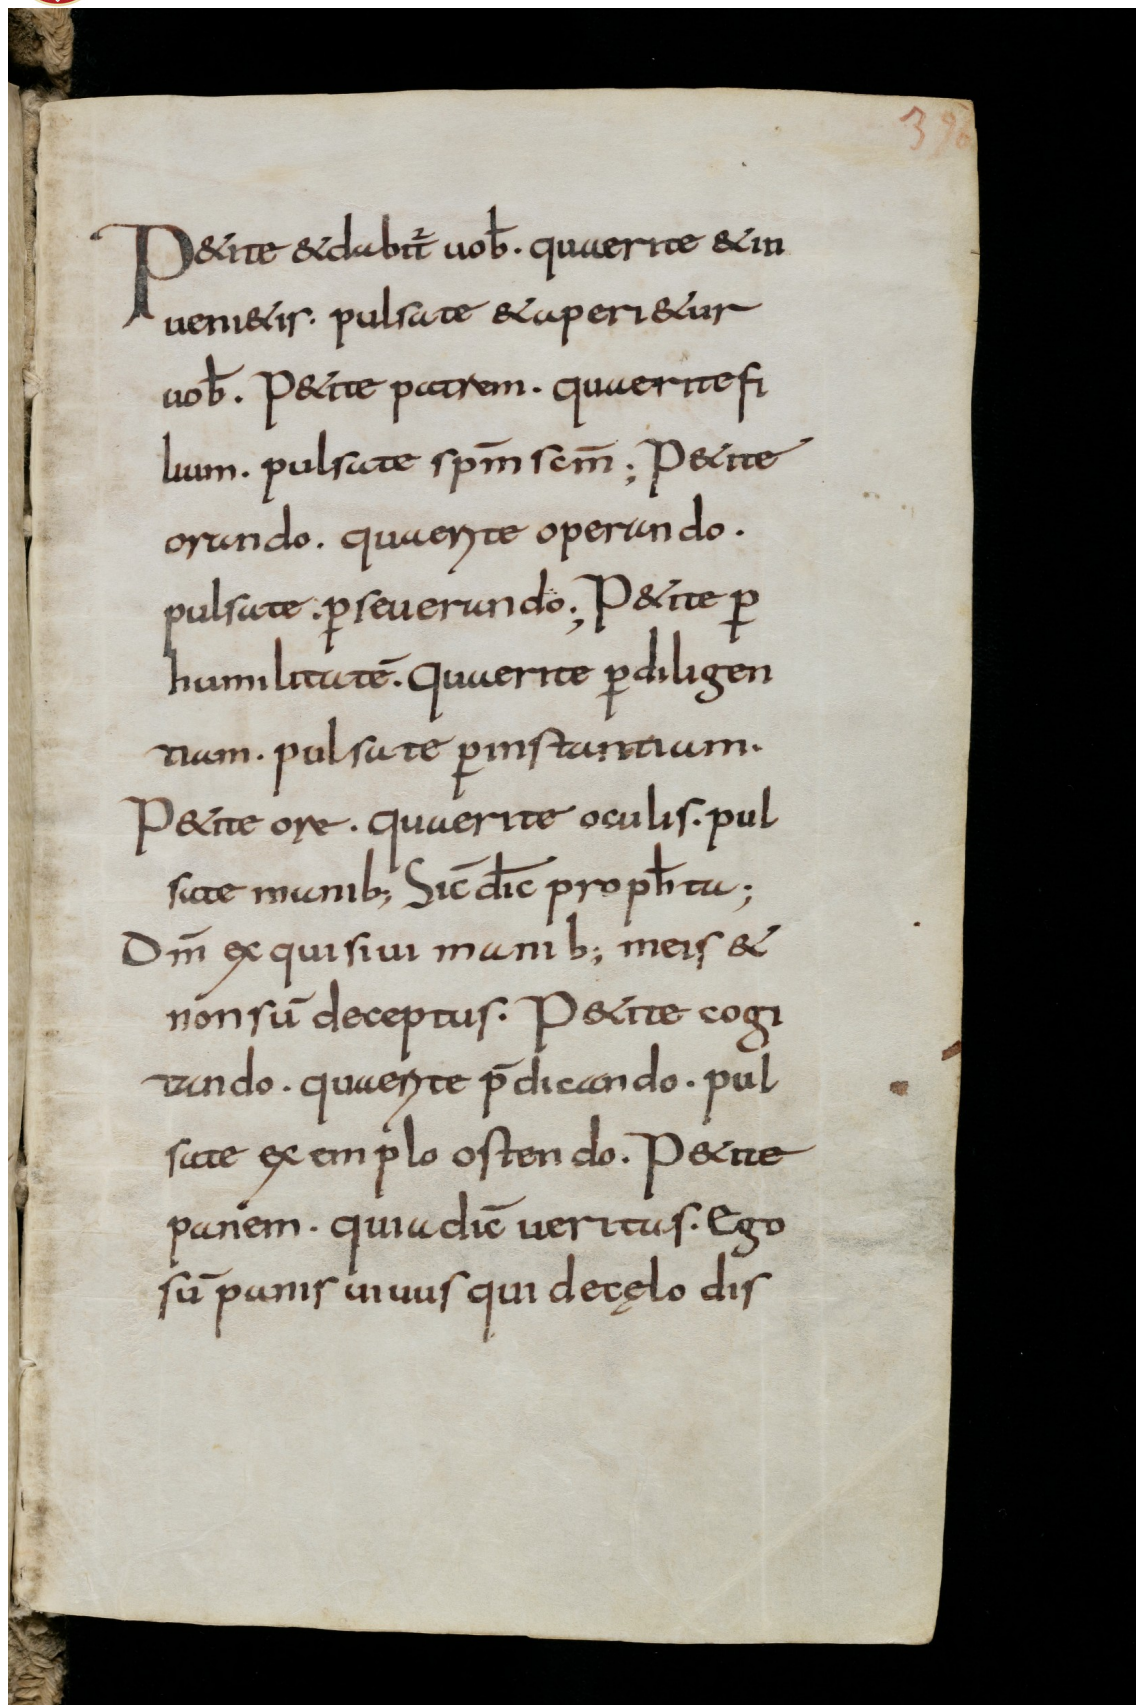 396
P&ite &dabit̃ uob̄. quaerite &in
ueni&is. pulsate &aperi&ur
uob̄. P&ite patrem. quaerite fi
lium. pulsate sp̄m scm̄; P&ite
orando. quaerite operando.
pulsate. ꝑseuerando; P&ite ꝑ
humilitatē. Quaerite ꝑdiligen
tiam. pulsate ꝑinstantiam.
P&ite ore. quaerite oculis. pul
sate manib; Sic̄ dic̄ proph̄ta;
Dm̄ exquisiui manib; meis &
non sū deceptus. P&ite cogi
tando. quaerite p̄dicando. pul
sate exemplo ostendo. P&ite
panem. quia dic̄ ueritas. Ego
sū panis uiuus qui decęlo dis